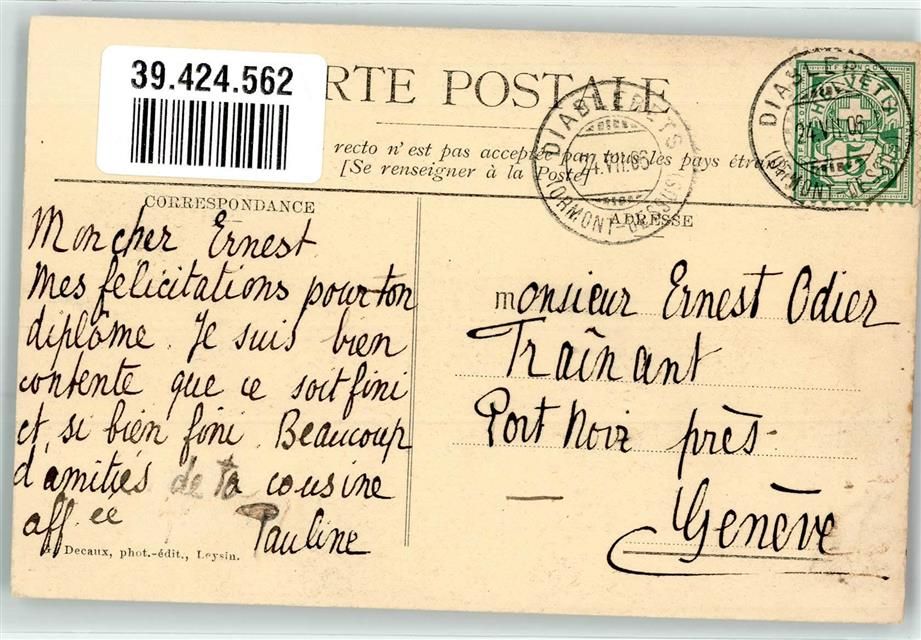 39.424.562
RTE POSTALE
recto n'est pas acceptée par tous les pays étran
[Se renseigner à la Poste]
DIABLERETS
24.VII.06
(ORMONT-DESSUS)
DIABLERETS
24.VII.06
(ORMONT-DESSUS)
HELVETIA
5
CORRESPONDANCE
ADRESSE
Mon cher Ernest
Mes félicitations pour ton
diplôme. Je suis bien
contente que ce soit fini
et, si bien fini. Beaucoup
d'amitiés de ta cousine
aff.ée
Pauline
Monsieur Ernest Odier
Traînant
Port Noir près
Genève
Decaux, phot.-édit., Leysin.